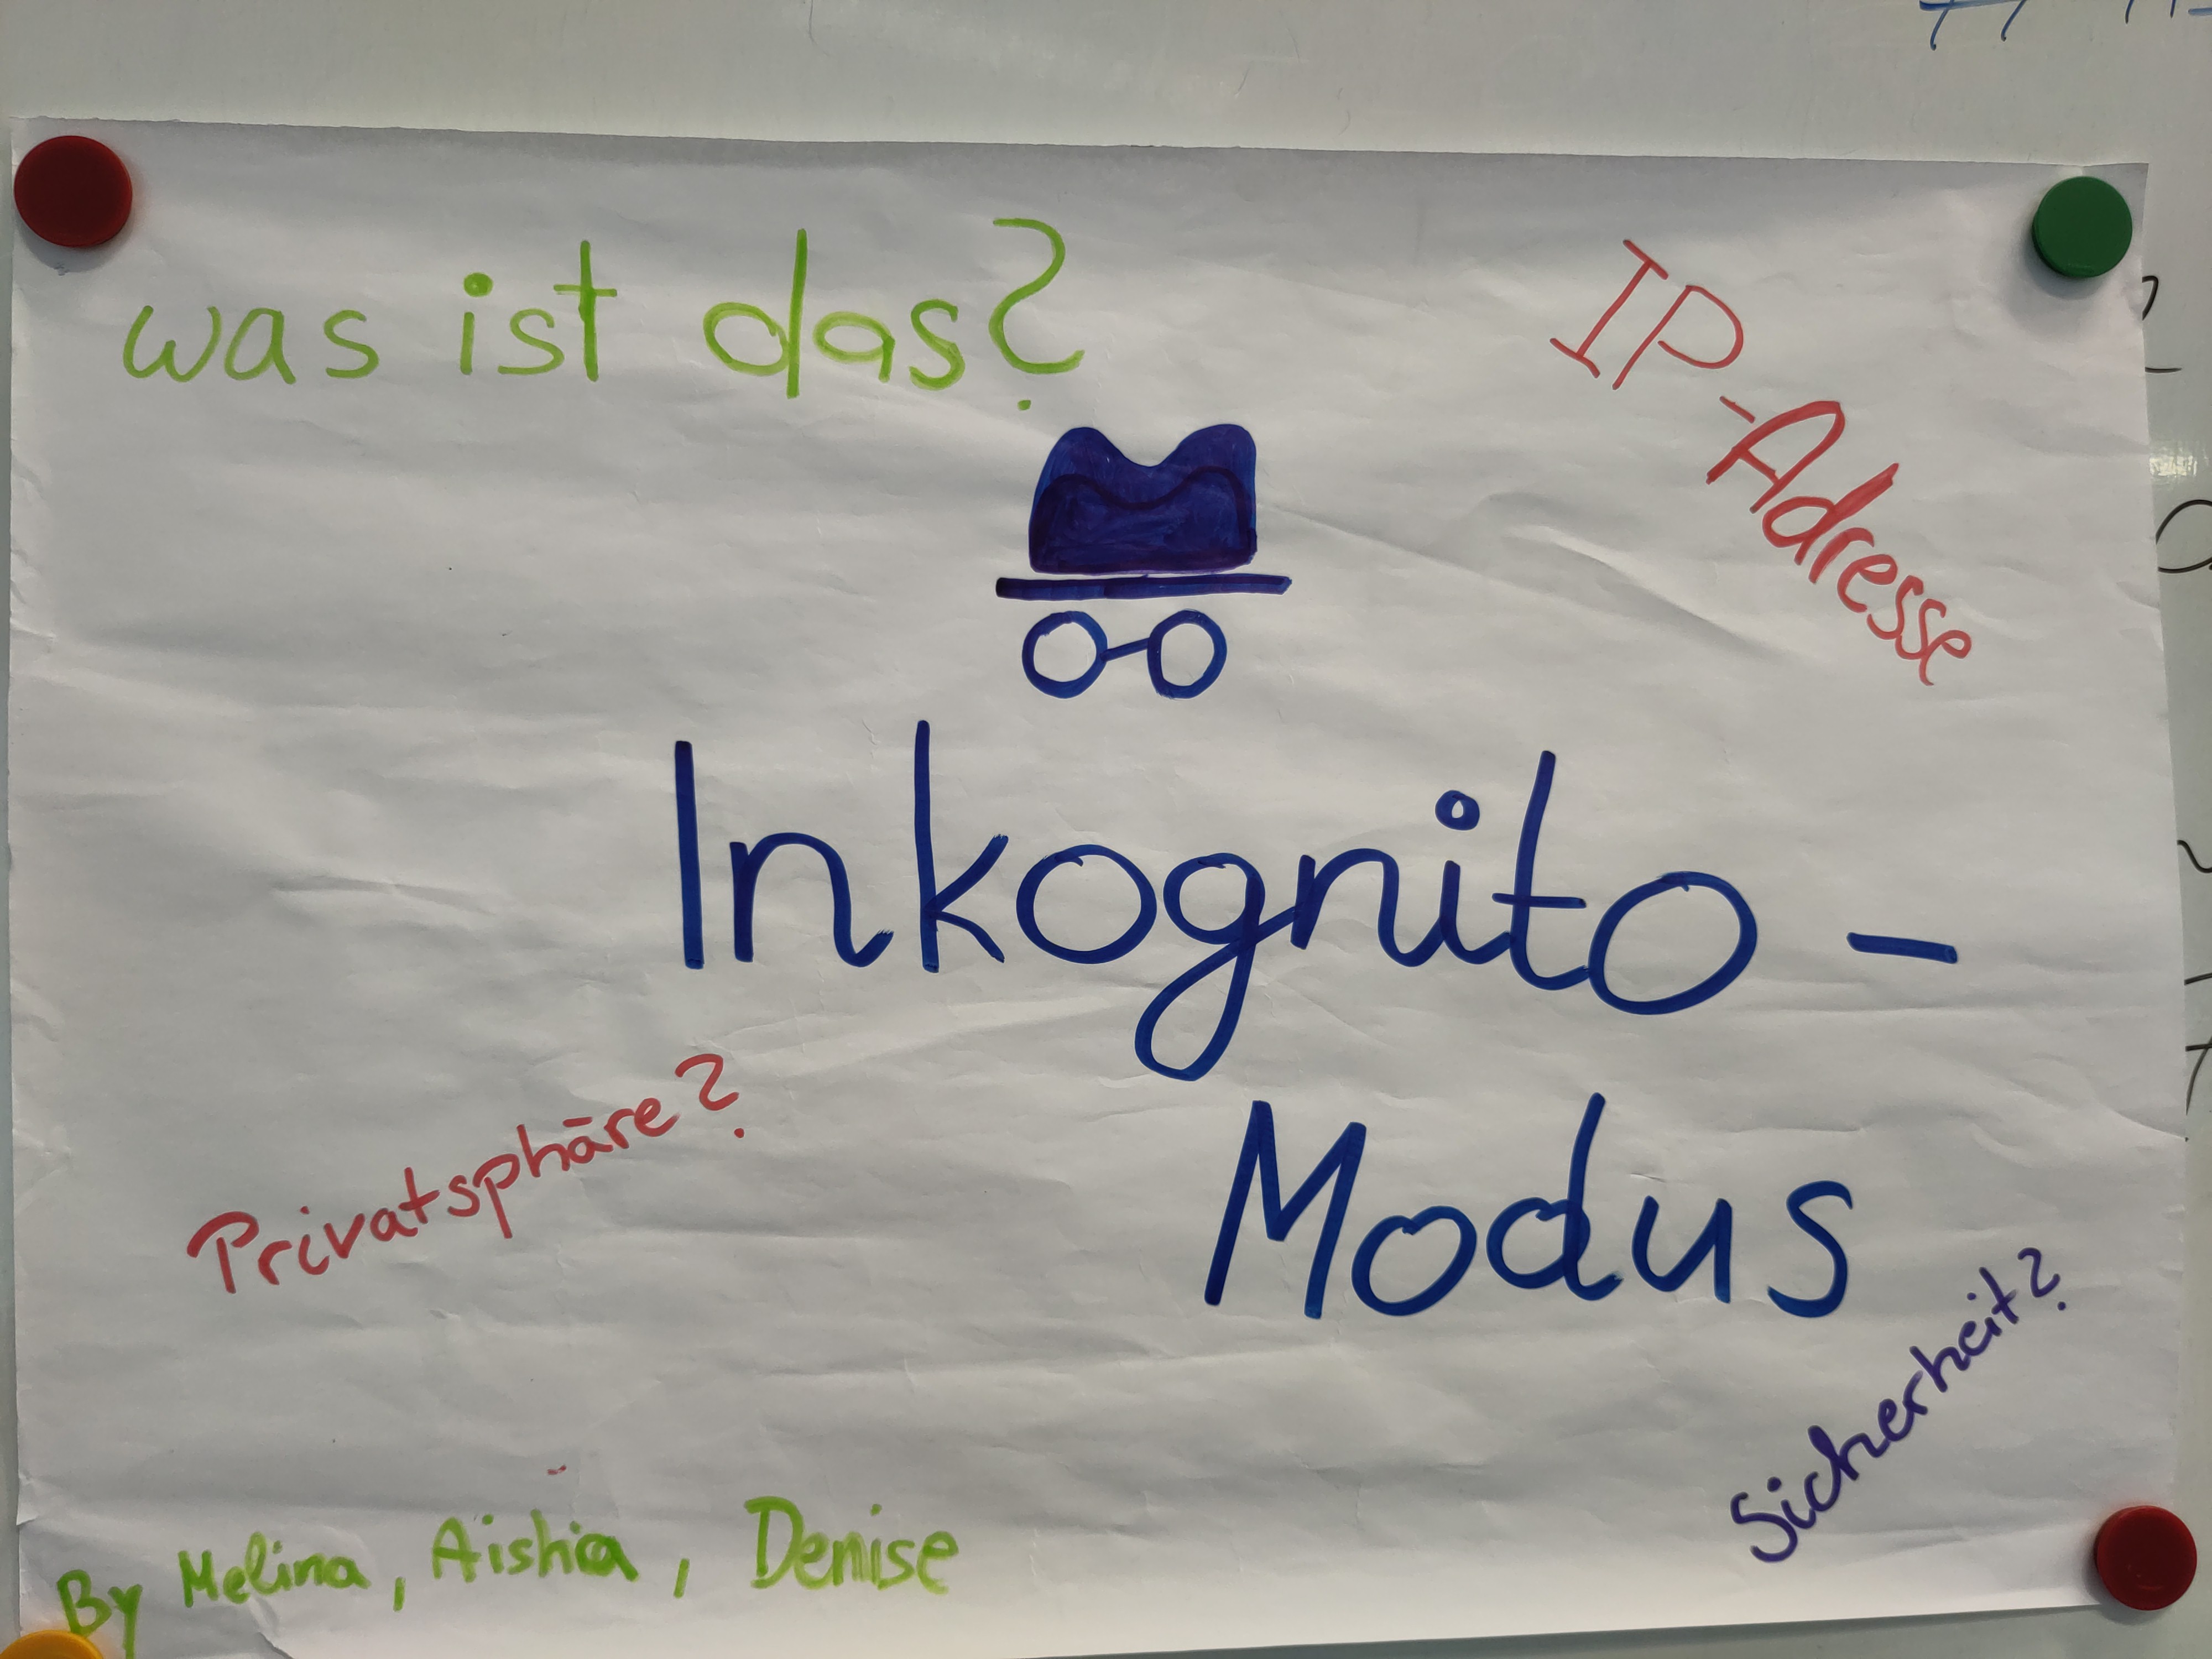 was ist das?
IP-Adresse
Inkognito-
Modus
Privatsphäre?
Sicherheit?
By Melina, Aishia, Denise